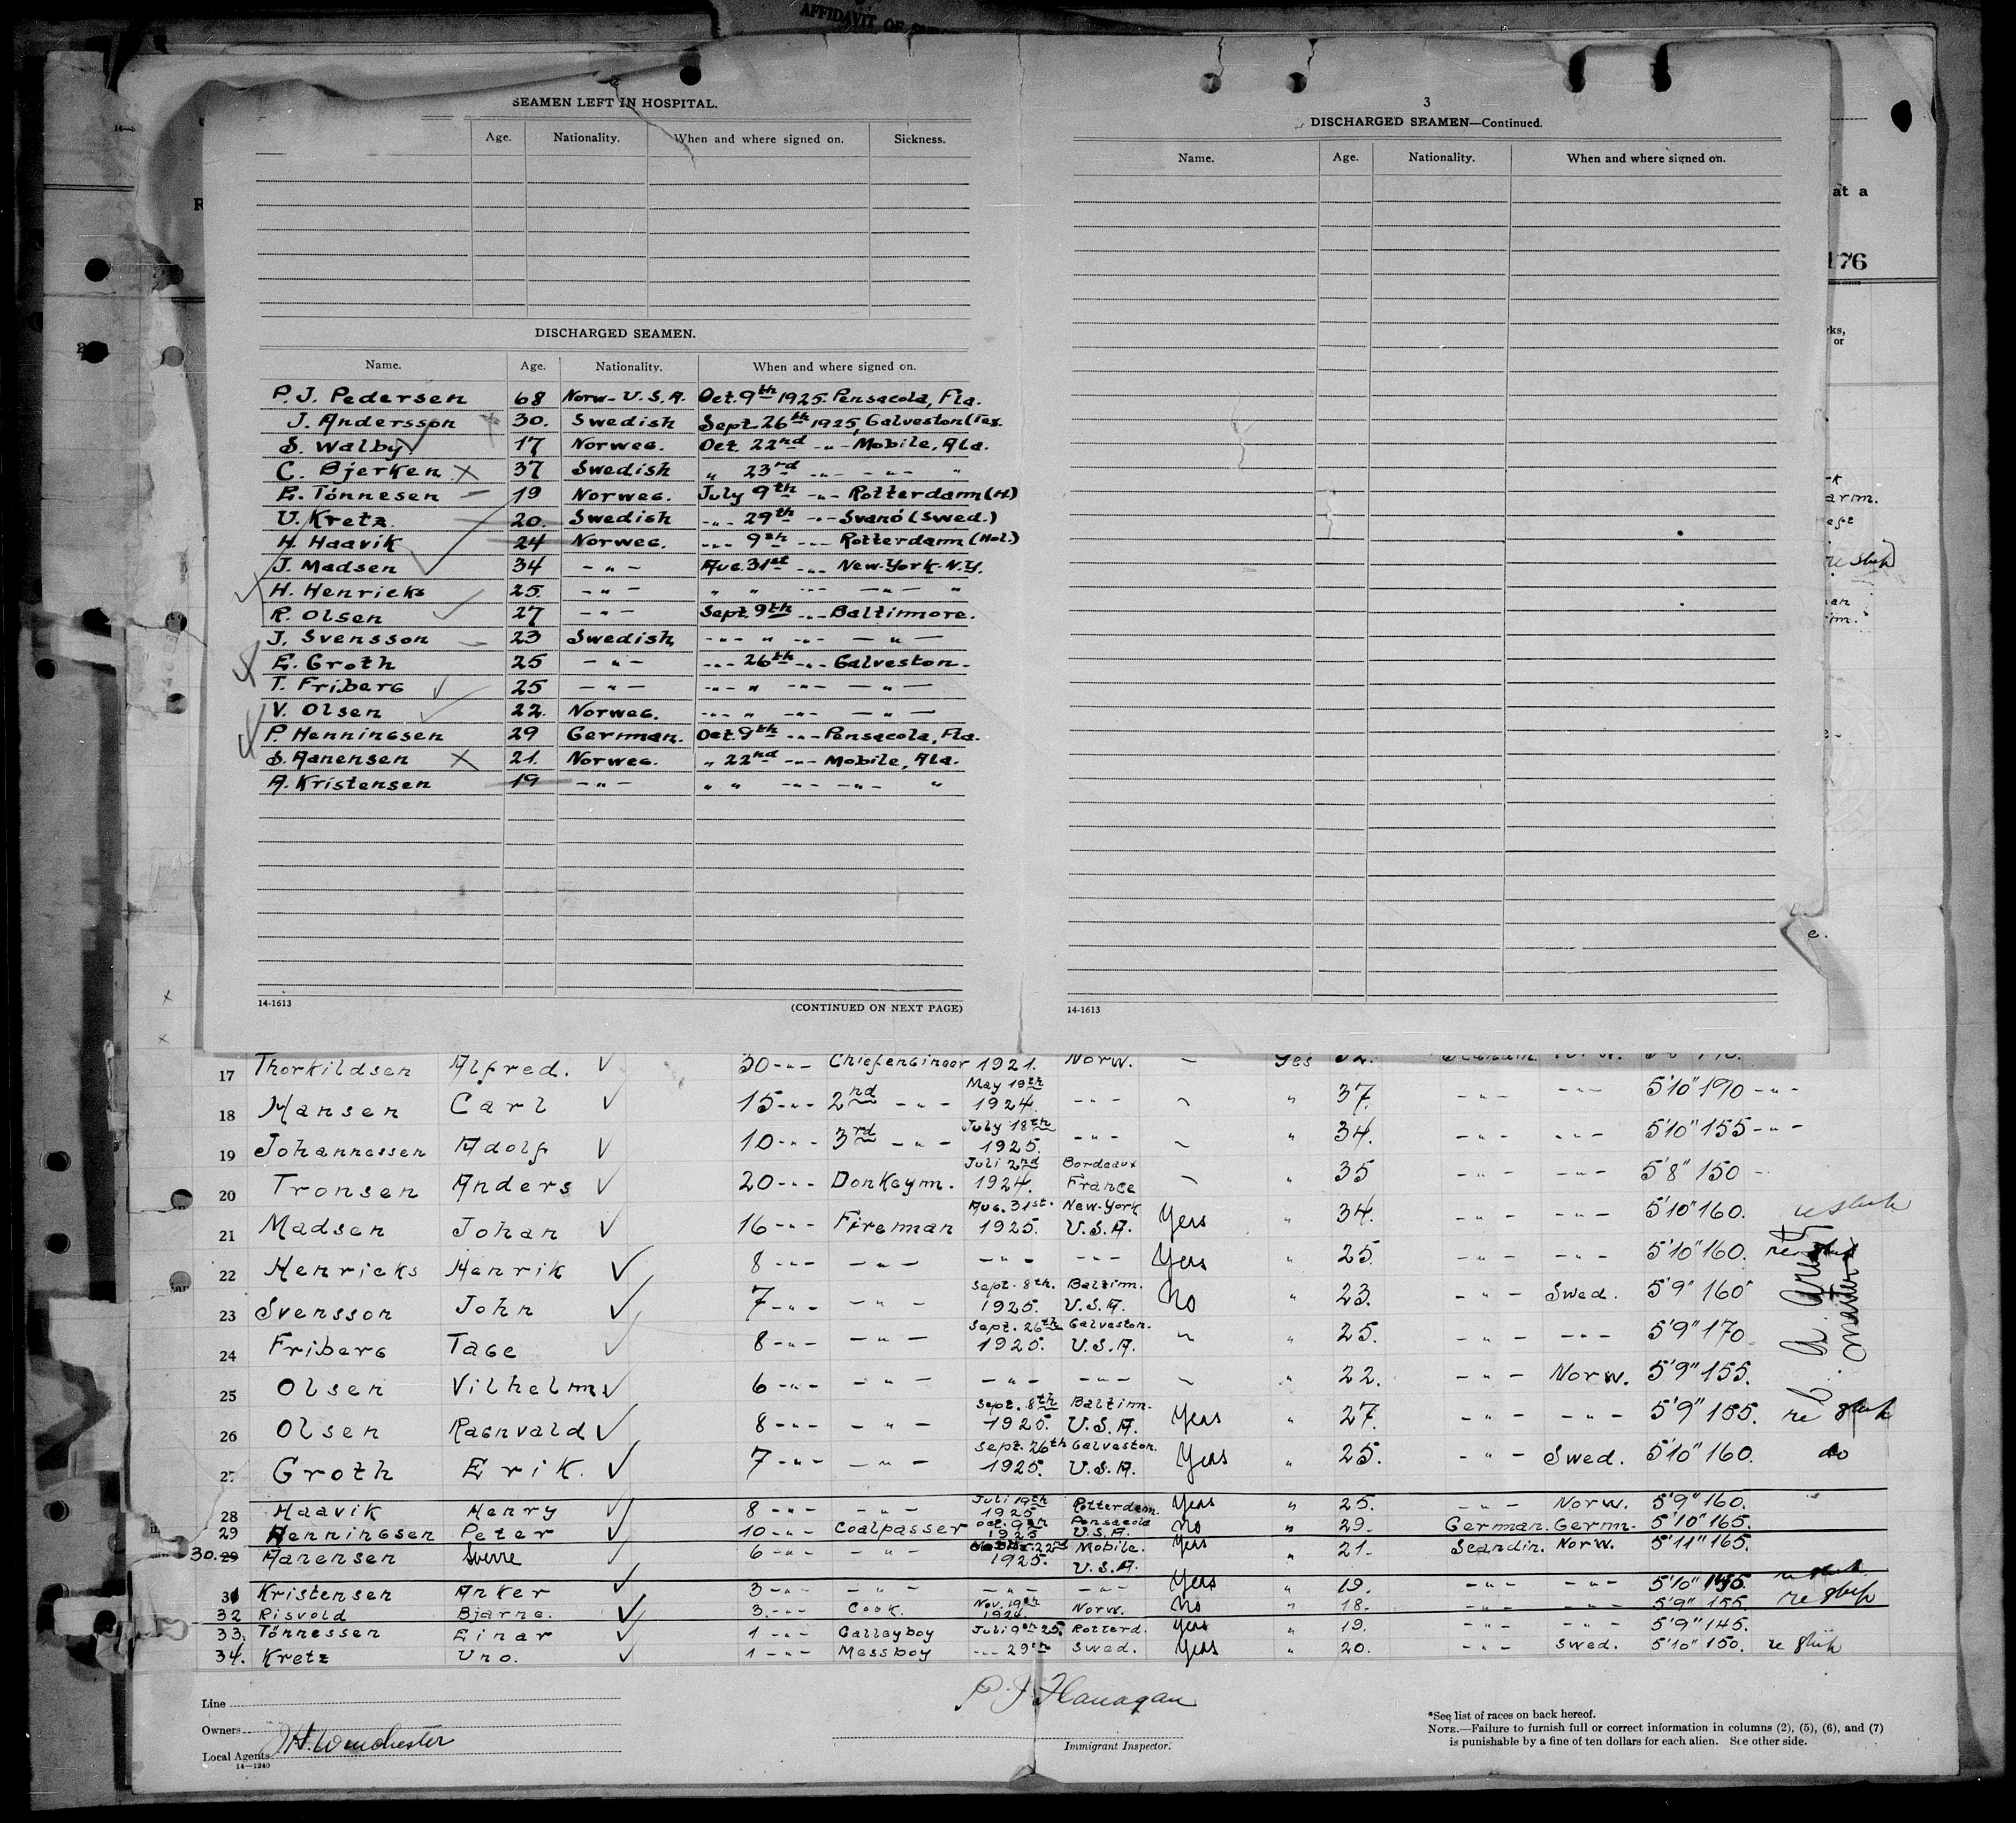 AFFIDAVIT OF
SEAMEN LEFT IN HOSPITAL.
Age. Nationality. When and where signed on. Sickness.
DISCHARGED SEAMEN.
Name. Age. Nationality. When and where signed on.
P. J. Pedersen 68 Norw- U.S.A. Oct. 9th 1925. Pensacola, Fla.
J. Andersson 30. Swedish Sept. 26th 1925, Galveston (Tex.
S. Walby 17 Norweg. Oct. 22nd -"- Mobile, Ala.
C. Bjerken 37 Swedish " 23rd -"- -"- "
E. Tönnesen 19 Norweg. July 9th -"- Rotterdam (H)
U. Kretz 20. Swedish -"- 29th -"- Svanö (Swed.)
H. Haavik 24 Norweg. -"- 9th -"- Rotterdam (Hol.)
J. Madsen 34 -"- Aug. 31st -"- New-York-N.Y.
H. Henricks 25. -"- " " -"- -"- "
R. Olsen 27 -"- Sept. 9th -"- Baltimore.
J. Svensson 23 Swedish -"- " -"- -"-
E. Groth 25 -"- -"- 26th -"- Galveston.
T. Friberg 25 -"- -"- " -"- -"-
V. Olsen 22. Norweg. -"- " -"- -"-
P. Henningsen 29 German. Oct. 9th -"- Pensacola, Fla.
S. Aanensen 21. Norweg. " 22nd -"- Mobile, Ala.
A. Kristensen 19 -"- " " -"- -"- "
14-1613 (CONTINUED ON NEXT PAGE)
3
DISCHARGED SEAMEN—Continued.
Name. Age. Nationality. When and where signed on.
14-1613
at a
176
or
17 Thorkildsen Alfred. 30 -"- Chiefengineer 1921. Norw. - Yes 32.
18 Hansen Carl 15 -"- 2nd -"- May 19th 1924. -"- " 37. -"- -"- 5'10" 190 -"-
19 Johannessen Adolf 10 -"- 3rd -"- July 18th 1925. -"- " 34. -"- -"- 5'10" 155 -"-
20 Tronsen Anders 20 -"- Donkeym. Juli 2nd 1924. Bordeaux France " 35 -"- -"- 5'8" 150 -
21 Madsen Johan 16 -"- Fireman Aug. 31st. 1925. New-York U.S.A. Yes " 34. -"- -"- 5'10" 160. reship
22 Henricks Henrik 8 -"- -"- -"- -"- Yes " 25. -"- -"- 5'10" 160. reship
23 Svensson John 7 -"- -"- Sept. 8th. 1925. Baltim. U.S.A. No " 23. -"- Swed. 5'9" 160
24 Friberg Tage 8 -"- -"- Sept. 26th 1925. Galveston. U.S.A. " 25. -"- -"- 5'9" 170
25 Olsen Vilhelm 6 -"- -"- -"- -"- " 22. -"- Norw. 5'9" 155.
26 Olsen Ragnvald 8 -"- -"- Sept. 8th 1925. Baltim. U.S.A. Yes " 27. -"- -"- 5'9" 155. re ship
27 Groth Erik. 7 -"- -"- Sept. 26th 1925. Galveston. U.S.A. Yes " 25. -"- Swed. 5'10" 160. do
28 Haavik Henry 8 -"- -"- Juli 19th 1925 Rotterdam. Yes " 25. -"- Norw. 5'9" 160.
29 Henningsen Peter 10 -"- Coalpasser Oct. 9th 1925 Pensacola U.S.A. No " 29. German. Germ. 5'10" 165.
30. 29 Aanensen Sverre 6 -"- -"- 22nd 1925. Mobile. U.S.A. Yes " 21. Scandin. Norw. 5'11" 165.
31 Kristensen Anker 3 -"- -"- -"- -"- Yes " 19. -"- -"- 5'10" 145. reship
32 Risvold Bjarne. 3. -"- Cook. Nov. 19th 1924. Norw. No " 18. -"- -"- 5'9" 155. re ship
33. Tönnessen Einar 1 -"- Galleyboy Juli 9th 25. Rotterd. Yes " 19. -"- -"- 5'9" 145.
34. Kretz Uno. 1 -"- Messboy -"- 29th Swed. Yes " 20. -"- Swed. 5'10" 150. re ship
Line
P. J. Flanagan
Owners
Local Agents J.H. Winchester
14—1240
Immigrant Inspector.
*See list of races on back hereof.
NOTE.—Failure to furnish full or correct information in columns (2), (5), (6), and (7)
is punishable by a fine of ten dollars for each alien. See other side.